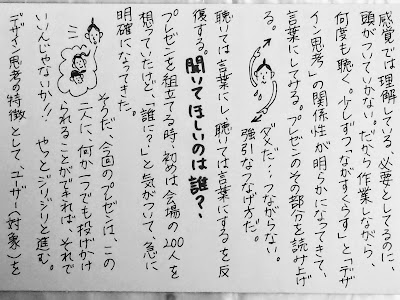 感覚では理解している、必要としてるのに、
頭がついていかない。だから作業しながら、
何度も聴く。少しずつ「つながすくらす」と「デザ
イン思考」の関係性が明らかになってきて、
言葉にしてみる。プレゼンのその部分を読み上げ
る。
ダメだ…つながらない。
強引なつなげ方だ。
聴いては言葉にし、聴いては言葉にするを反
復する。
聞いてほしいのは誰?、
プレゼンを組立てる時、初めは会場の200人を
想ってたけど、「誰に?」と気がついて、急に
明確になってきた。
そうだ、今回のプレゼンは、この
二人に、何か一つでも投げかけ
られることができれば、それで
いいんじゃないか!!やっとジリジリと進む。
デザイン思考の特徴として、ユーザー(対象)を